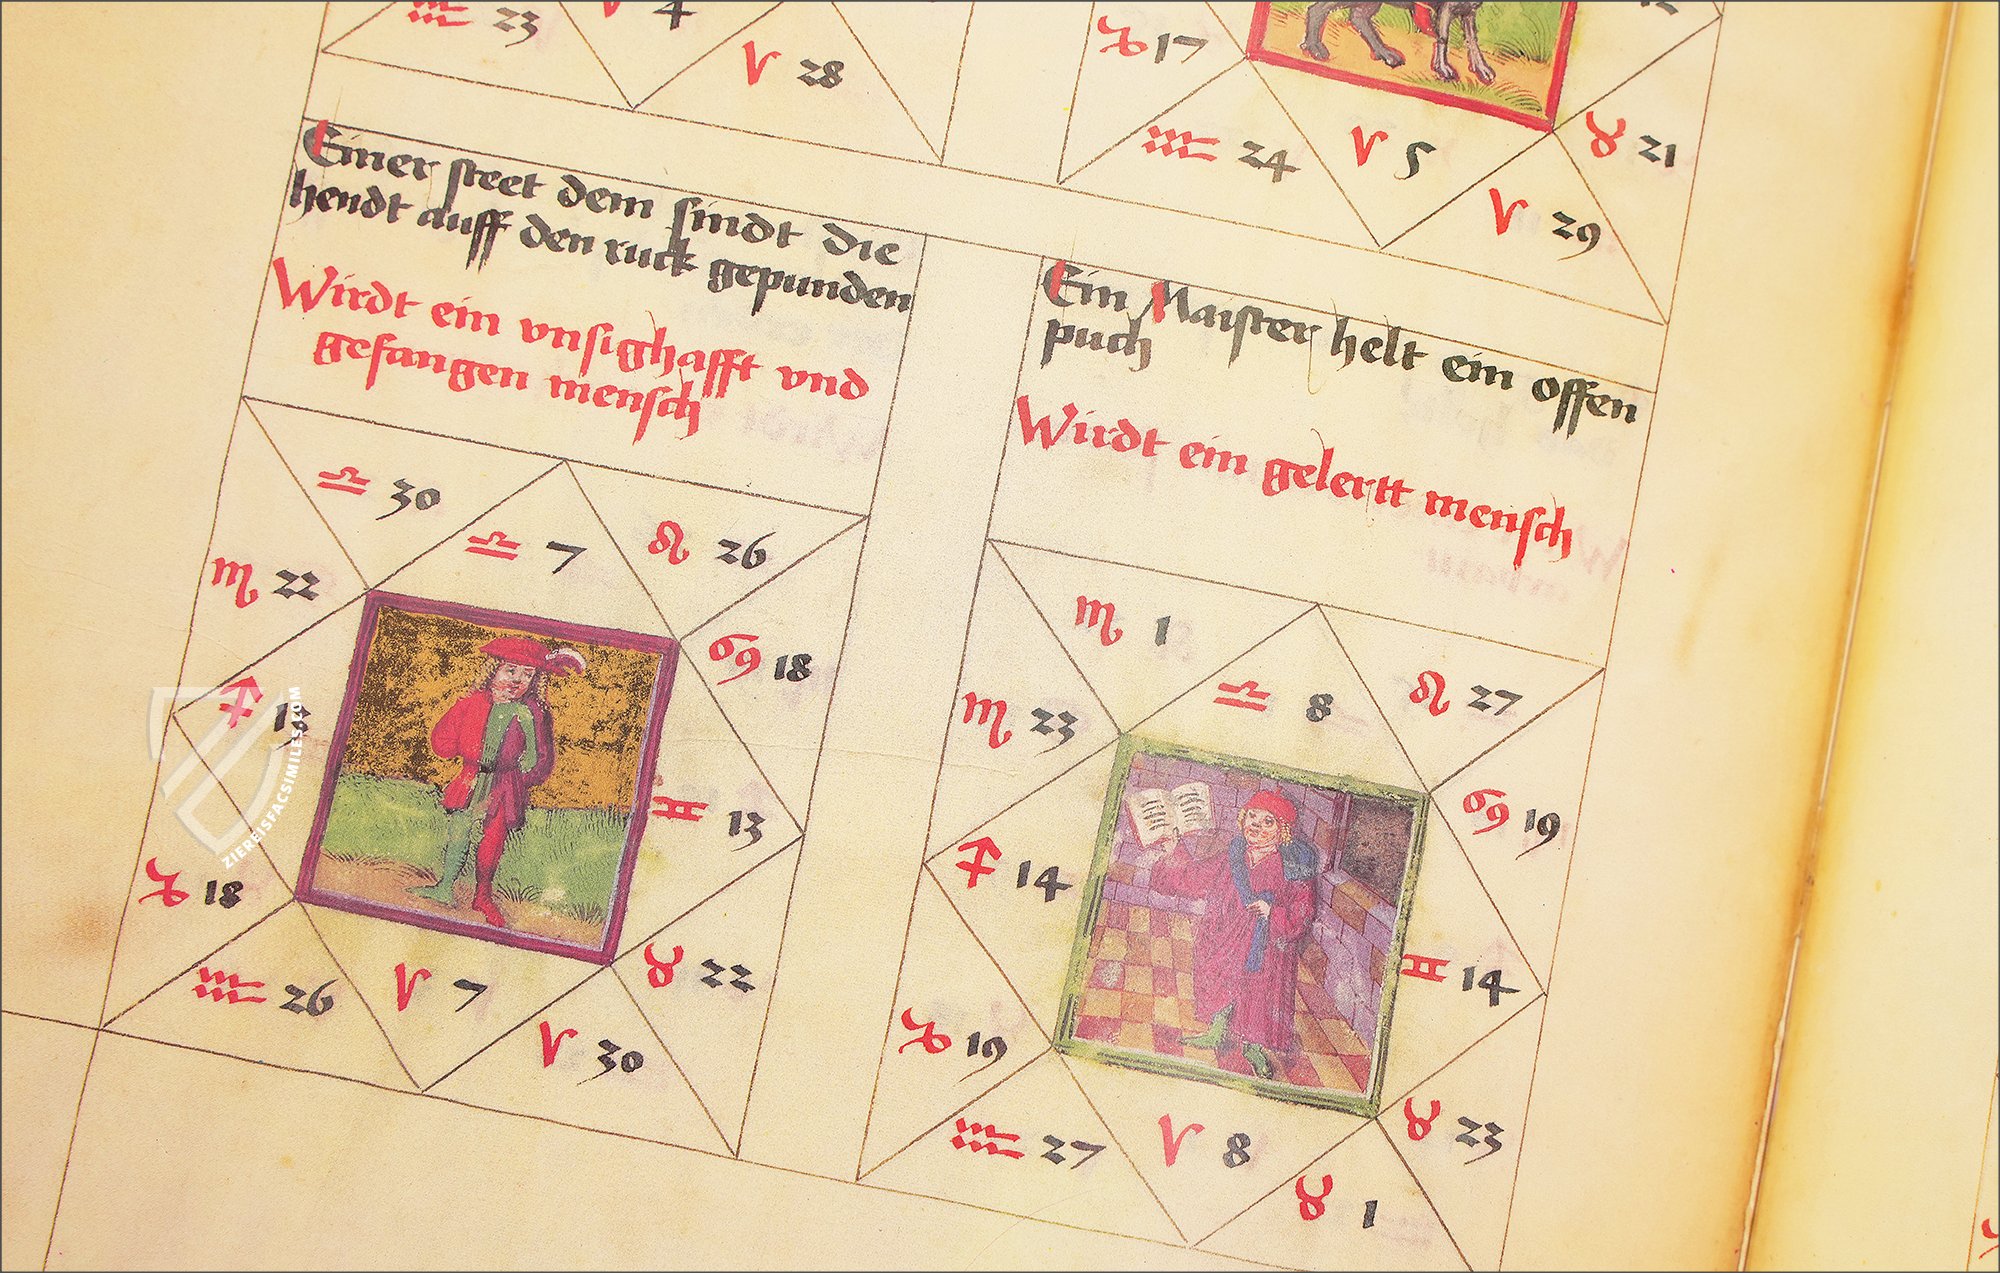 ♒ 23
4
♈ 28
♑ 17
♒ 24
♈ 5
♉ 21
♈ 29
Einer steet dem sindt die
hendt auff den ruck gepunden
Wirdt ein vnsighafft vnd
gefangen mensch
♎ 30
♎ 7
♌ 26
♏ 22
♋ 18
♐
♊ 13
♑ 18
♒ 26
♈ 7
♉ 22
♈ 30
Ein Maister helt ein offen
puch
Wirdt ein gelertt mensch
♏ 1
♎ 8
♌ 27
♏ 23
♋ 19
♐ 14
♊ 14
♑ 19
♒ 27
♈ 8
♉ 23
♉ 1
ZIEREISFACSIMILES.COM